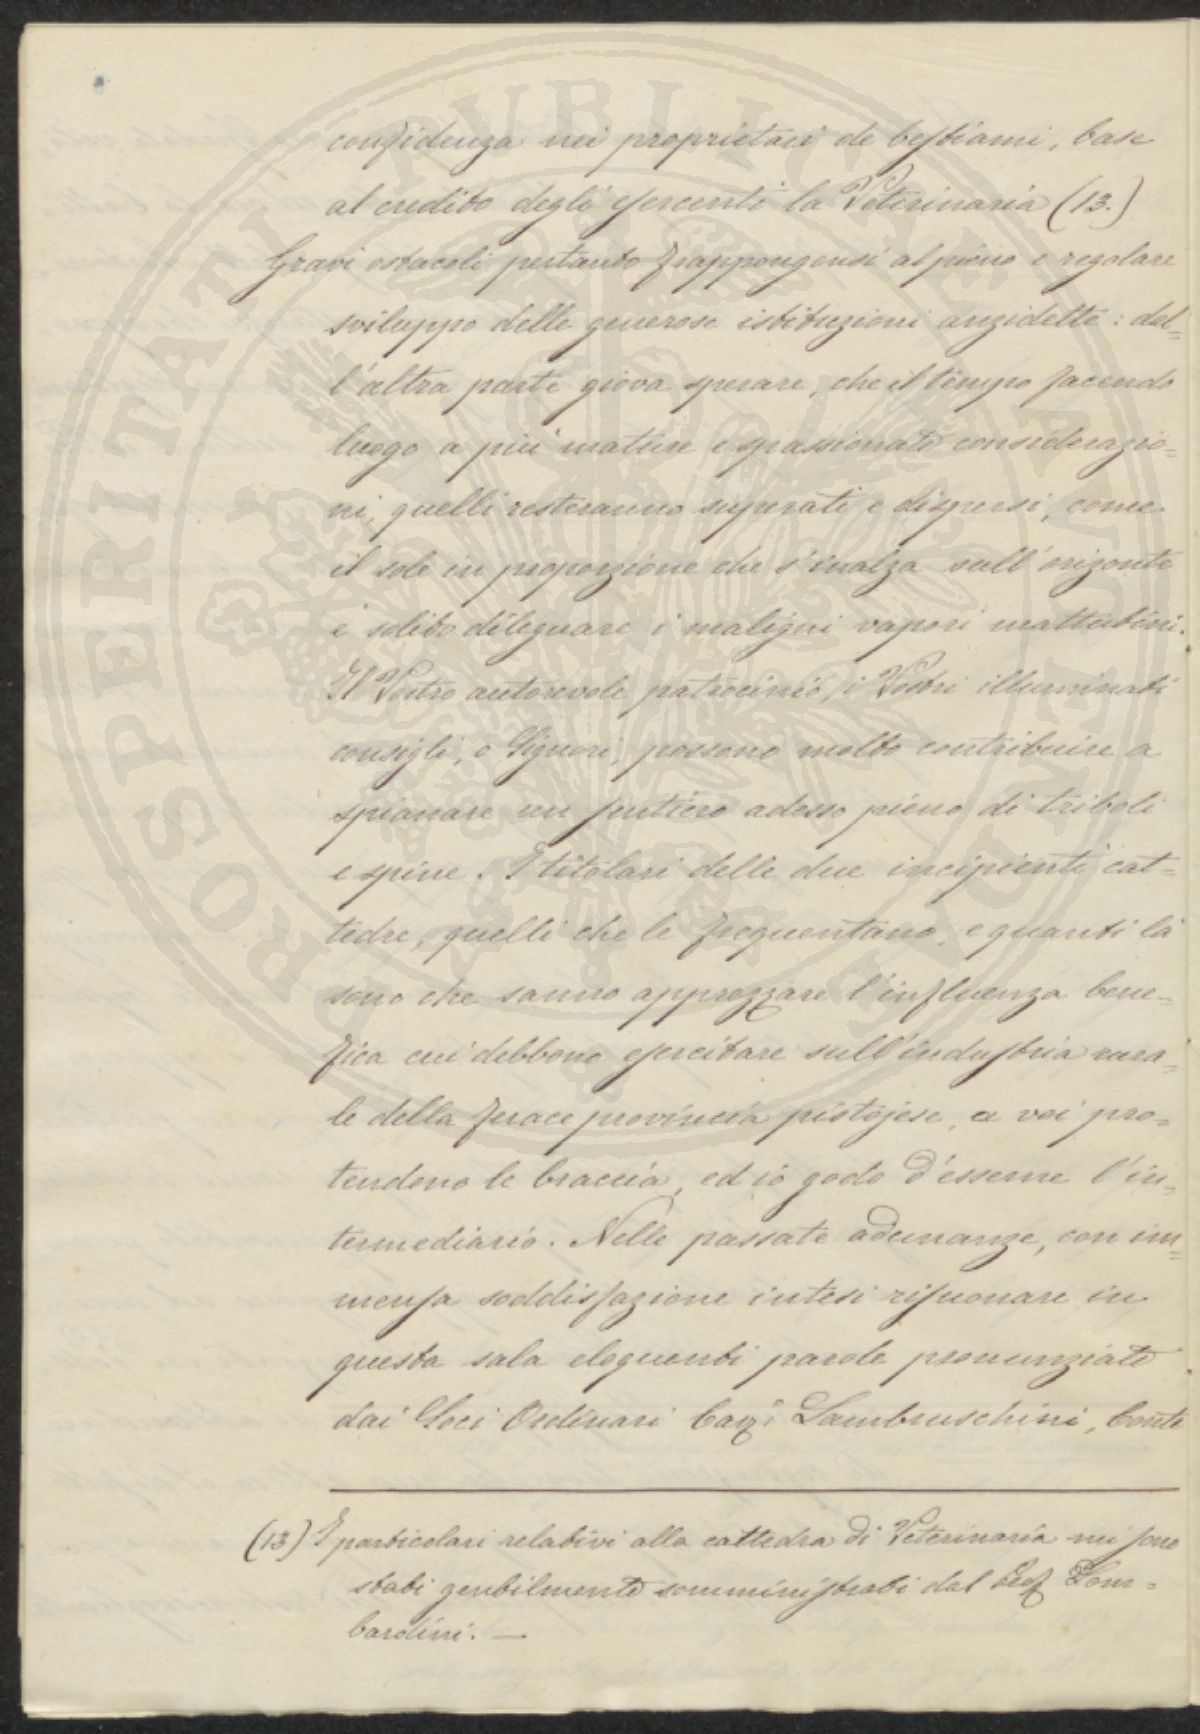 confidenza nei proprietari de bestiami, base
al credito degli esercenti la Veterinaria (13.)
Gravi ostacoli pertanto frappongonsi al pieno e regolare
sviluppo delle generose istituzioni anzidette: dal=
l'altra parte giova sperare, che il tempo facendo
luogo a più mature e spassionate considerazio=
ni, quelli resteranno superati e dispersi, come
il sole in proporzione che s'inalza sull'orizonte
è solito dileguare i maligni vapori mattutini.
Il Vostro autorevole patrocinio, i Vostri illuminati
consigli, o Signori, possono molto contribuire a
spianare un sentiero adesso pieno di triboli
e spine. I titolari delle due incipienti cat=
tedre, quelli che le frequentano, e quanti là
sono che sanno apprezzare l'influenza bene=
fica cui debbono esercitare sull'industria rura=
le della ferace provincia pistojese, a voi pro=
tendono le braccia, ed io godo d'esserne l'in=
termediario. Nelle passate adunanze, con im=
mensa soddisfazione intesi risuonare in
questa sala eloquenti parole pronunziate
dai Soci Ordinari Lambruschini, Conte
(13) I particolari relativi alla cattedra di Veterinaria mi sono
stati gentilmente somministrati dal Prof Lom=
bardini. —
PROSPERITATI PUBLICAE AUGENDAE